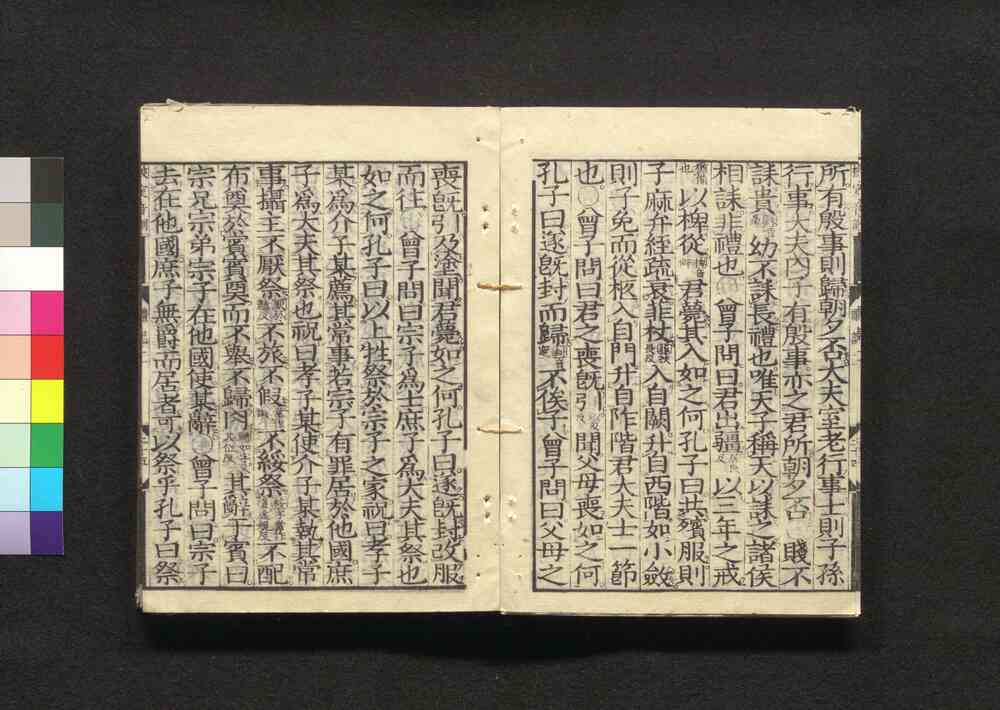 所有殷事則歸朝夕否大夫室老行事士則子孫
行事大夫內子有殷事亦之君所朝夕否賤不
誄貴幼不誄長禮也唯天子稱天以誄之諸侯
相誄非禮也曾子問曰君出疆以三年之戒
以椑從君薨其入如之何孔子曰共殯服則
子麻弁絰疏衰菲杖入自闕升自西階如小斂
則子免而從柩入自門升自阼階君大夫士一節
也曾子問曰君之喪旣引聞父母喪如之何
孔子曰遂旣封而歸不俟子曾子問曰父母之
喪旣引及塗聞君薨如之何孔子曰遂旣封改服
而往曾子問曰宗子爲士庶子爲大夫其祭也
如之何孔子曰以上牲祭於宗子之家祝曰孝子
某爲介子某薦其常事若宗子有罪居於他國庶
子爲大夫其祭也祝曰孝子某使介子某執其常
事攝主不厭祭不旅不假不綏祭不配
布奠於賓賓奠而不舉不歸肉其辭于賓曰
宗兄宗弟宗子在他國使某辭曾子問曰宗子
去在他國庶子無爵而居者可以祭乎孔子曰祭